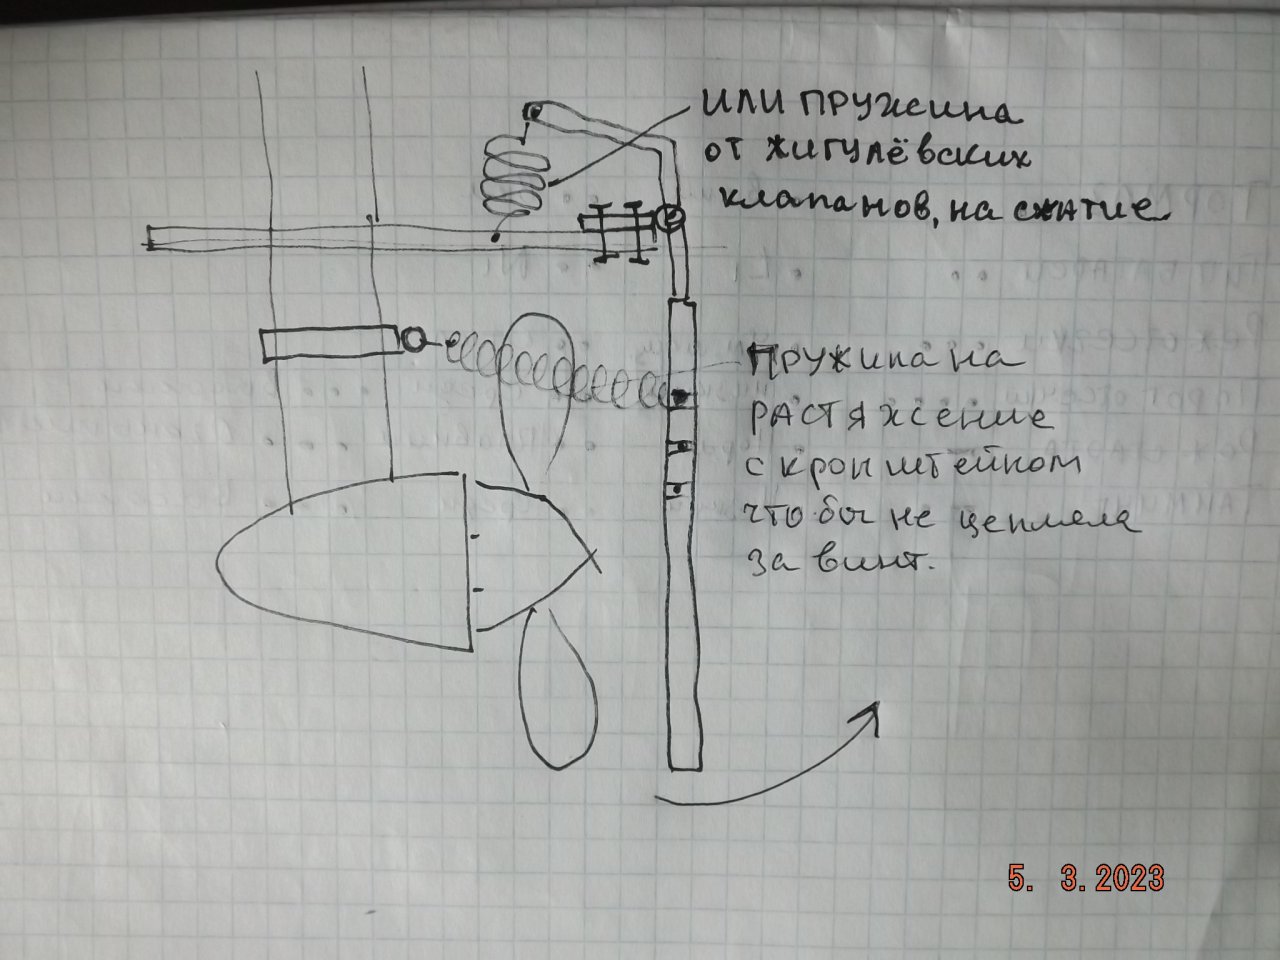 ИЛИ ПРУЖИНА
ОТ ЖИГУЛЁВСКИХ
КЛАПАНОВ, НА СЖАТИЕ
ПРУЖИНА НА
РАСТЯЖЕНИЕ
С КРОНШТЕЙНОМ
ЧТО БЫ НЕ ЦЕПЛЯЛА
ЗА ВИНТ.
5. 3.2023